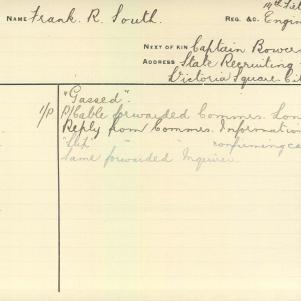 14th Fel
NAME Frank. R. South. REG. &C. Engin
NEXT OF KIN Captain Bowers
ADDRESS State Recruiting
Victoria Square. Cit
"Gassed".
1/P P/Cable forwarded Commrs. Lon
Reply from Commrs. Information
confirming ca
same forwarded Inquirer.